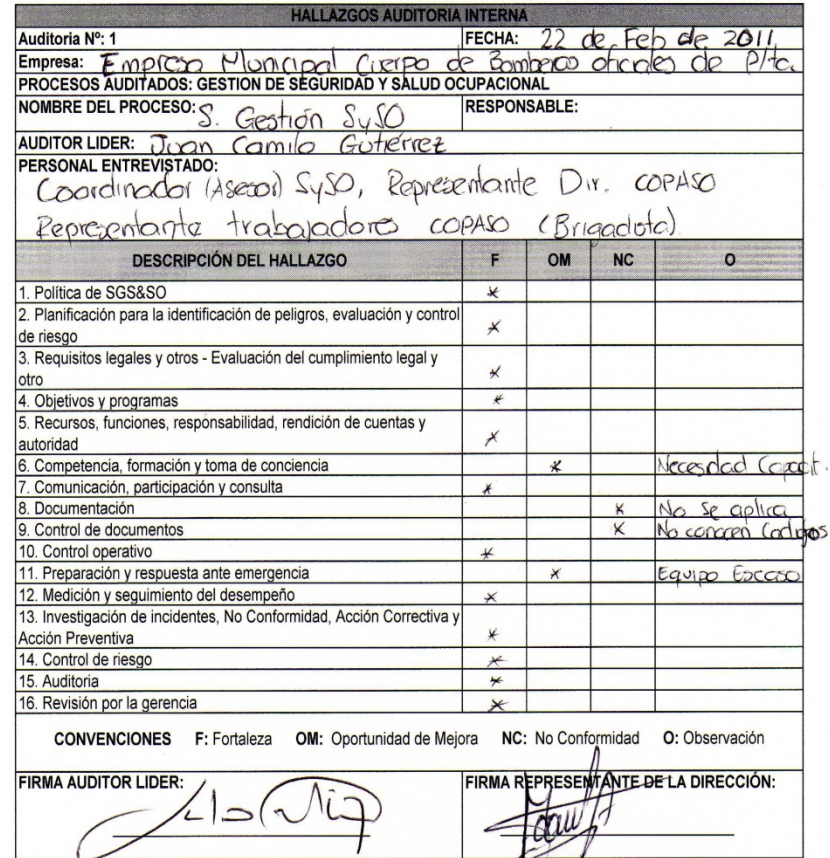 HALLAZGOS AUDITORIA INTERNA
Auditoria Nº: 1 FECHA: 22 de Feb de 2011
Empresa: Empresa Municipal Cuerpo de Bomberos oficiales de P/ta.
PROCESOS AUDITADOS: GESTION DE SEGURIDAD Y SALUD OCUPACIONAL
NOMBRE DEL PROCESO: S. Gestión SySO RESPONSABLE:
AUDITOR LIDER: Juan Camilo Gutiérrez
PERSONAL ENTREVISTADO:
Coordinador (Asesor) SySO, Representante Dir. COPASO
Representante trabajadores COPASO (Brigadista)
DESCRIPCIÓN DEL HALLAZGO F OM NC O
1. Política de SGS&SO x
2. Planificación para la identificación de peligros, evaluación y control
de riesgo x
3. Requisitos legales y otros - Evaluación del cumplimiento legal y
otro x
4. Objetivos y programas x
5. Recursos, funciones, responsabilidad, rendición de cuentas y
autoridad x
6. Competencia, formación y toma de conciencia x Necesidad Capacit.
7. Comunicación, participación y consulta x
8. Documentación x No se aplica
9. Control de documentos x No conocen Codigos
10. Control operativo x
11. Preparación y respuesta ante emergencia x Equipo Escaso
12. Medición y seguimiento del desempeño x
13. Investigación de incidentes, No Conformidad, Acción Correctiva y
Acción Preventiva x
14. Control de riesgo x
15. Auditoria x
16. Revisión por la gerencia x
CONVENCIONES F: Fortaleza OM: Oportunidad de Mejora NC: No Conformidad O: Observación
FIRMA AUDITOR LIDER: FIRMA REPRESENTANTE DE LA DIRECCIÓN: